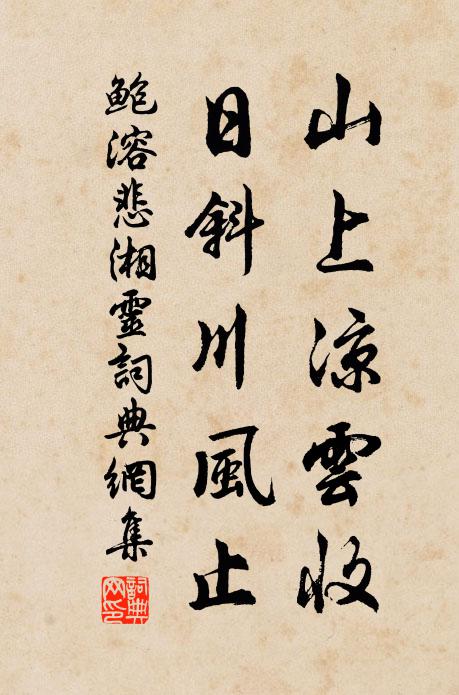 山上涼雲收
日斜川風止
鮑溶悲湘靈詞典網集
詞典
网印